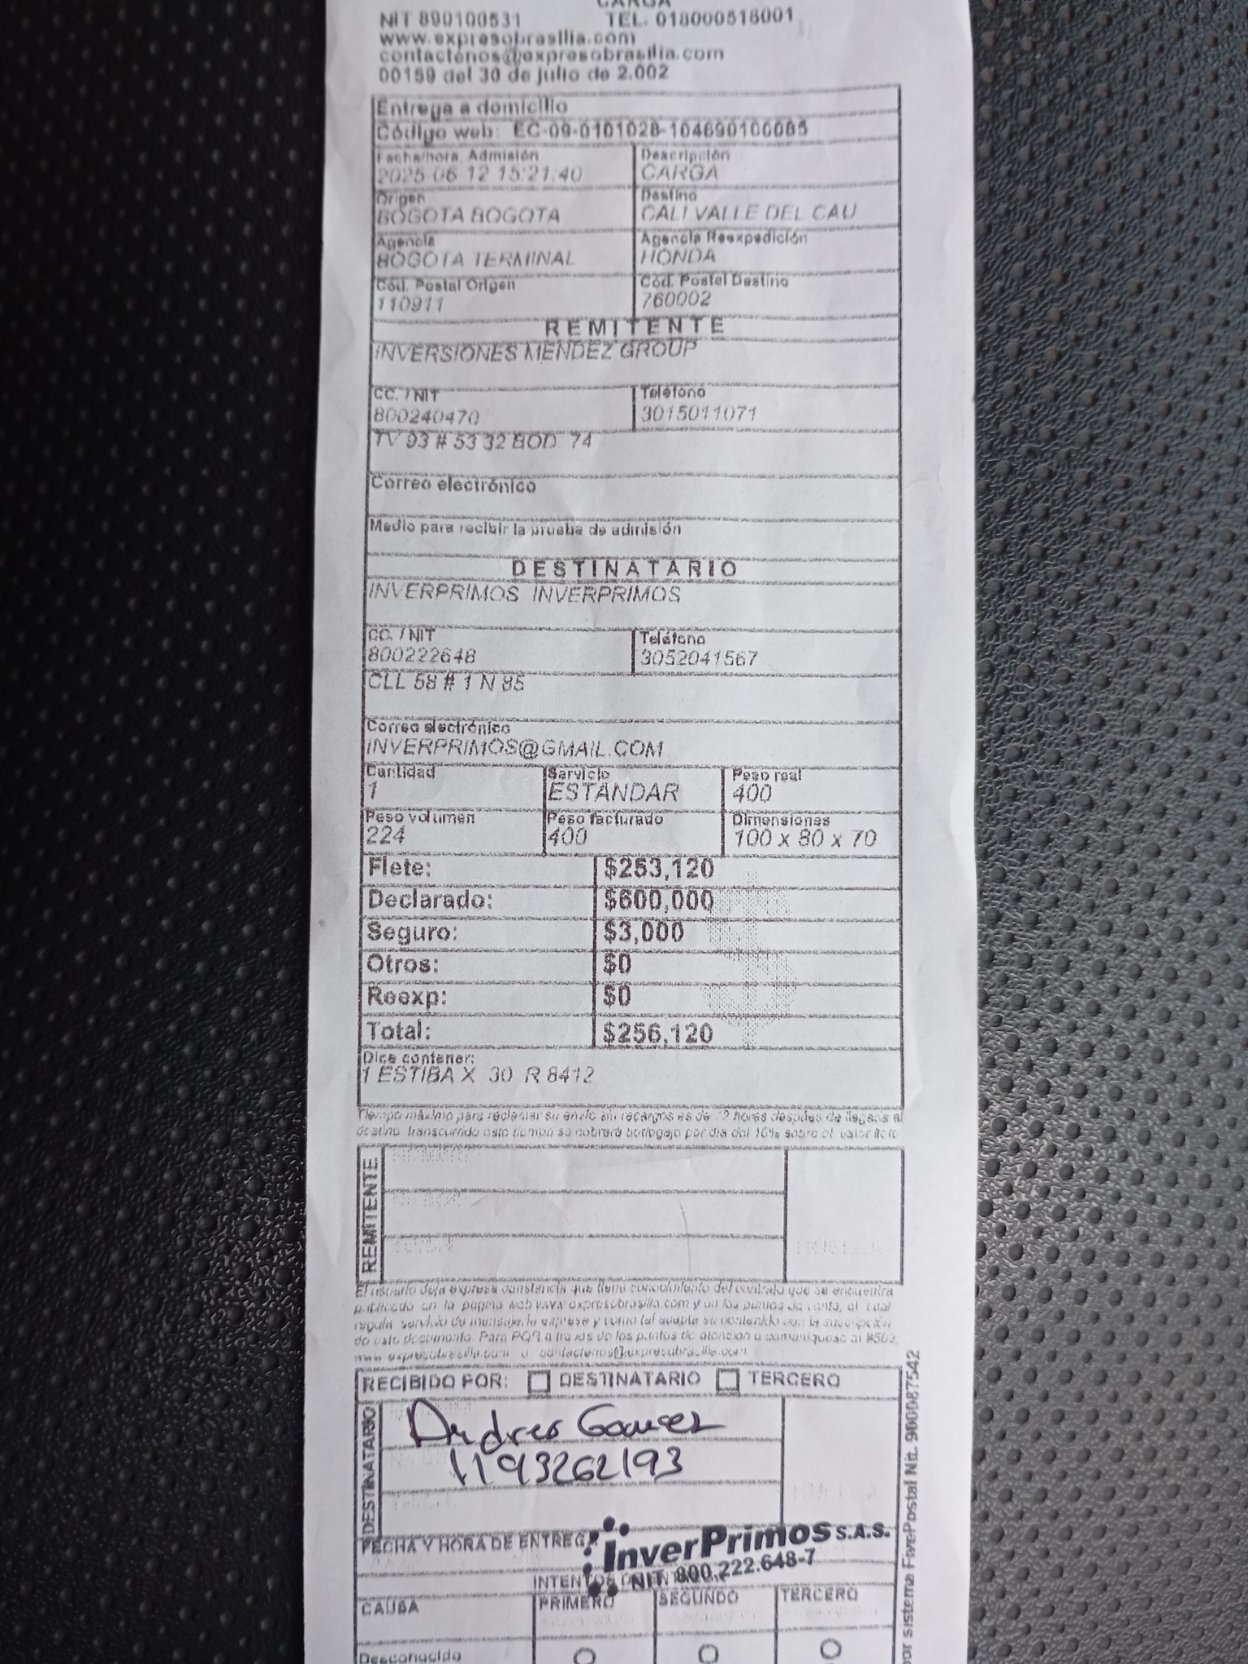 CARGA
NIT 890100531 TEL. 018000518001
www.expresobrasilia.com
contactenos@expresobrasilia.com
00159 del 30 de julio de 2.002
Entrega a domicilio
Código web: EC-09-0101028-104690100085
Fecha/hora Admisión Descripción
2025 06 12 15:21:40 CARGA
Origen Destino
BOGOTA BOGOTA CALI VALLE DEL CAU
Agencia Agencia Reexpedición
BOGOTA TERMINAL HONDA
Cód. Postal Origen Cód. Postal Destino
110911 760002
REMITENTE
INVERSIONES MENDEZ GROUP
CC. / NIT Teléfono
800240470 3015011071
TV 93 # 53 32 BOD. 74
Correo electrónico
Medio para recibir la prueba de admisión
DESTINATARIO
INVERPRIMOS INVERPRIMOS
CC. / NIT Teléfono
800222648 3052041567
CLL 58 # 1 N 85
Correo electrónico
INVERPRIMOS@GMAIL.COM
Cantidad Servicio Peso real
1 ESTANDAR 400
Peso volumen Peso facturado Dimensiones
224 400 100 x 80 x 70
Flete: $253,120
Declarado: $600,000
Seguro: $3,000
Otros: $0
Reexp: $0
Total: $256,120
Dice contener:
1 ESTIBA X 30 R 8412
Tiempo máximo para reclamar su envío sin recargos es de 72 horas después de llegada al
destino. Transcurrido este tiempo se cobrará bodegaje por día del 10% sobre el valor flete
REMITENTE
El usuario deja expresa constancia que tiene conocimiento del contrato que se encuentra
publicado en la pagina web www.expresobrasilia.com y en los puntos de venta, el cual
regula servicio de mensajería expresa y como tal adapta su contenido con la suscripción
de este documento. Para PQR a través de los puntos de atención o comuníquese al #502,
www.expresobrasilia.com o contactenos@expresobrasilia.com
RECIBIDO POR: DESTINATARIO TERCERO
DESTINATARIO
Andres Gomez
1193262193
FECHA Y HORA DE ENTREGA
InverPrimos S.A.S.
NIT. 800.222.648-7
CAUSA PRIMERO SEGUNDO TERCERO
Desconocido
por sistema FivePostal Nit. 900087542